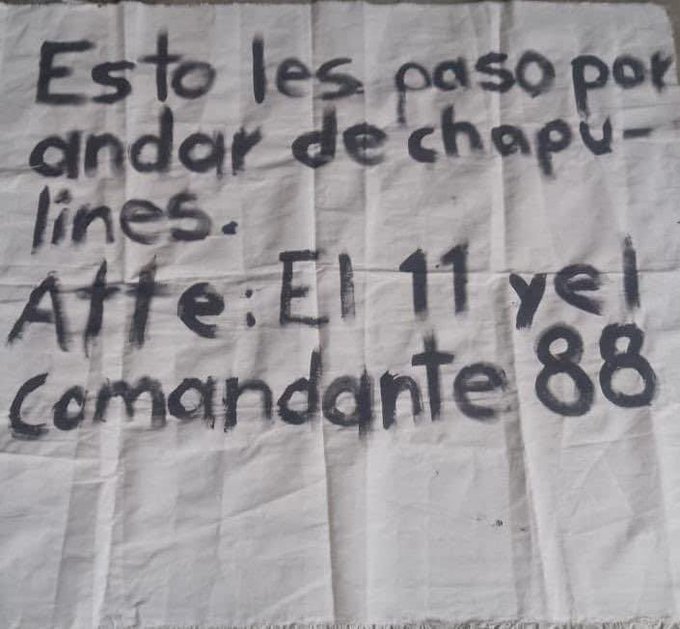 Esto les paso por
andar de chapu-
lines.
Atte: El 11 y el
comandante 88